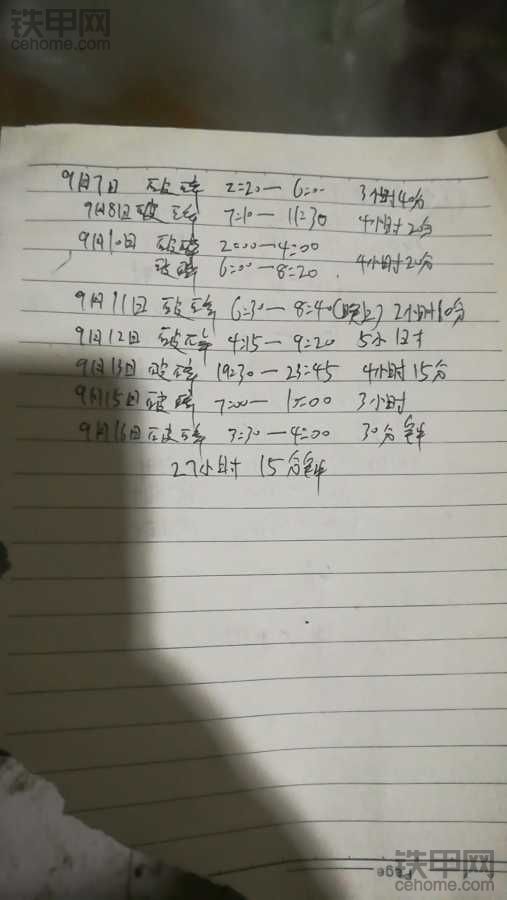 铁甲网
cehome.com
9月7日 破碎 2:20—6:00 3小时40分
9月8日破碎 7:10—11:30 4小时20分
9月10日 破碎 2:00—4:00
破碎 6:00—8:20 4小时20分
9月11日 破碎 6:30—8:40(晚上) 2小时10分
9月12日 破碎 4:15—9:20 5小时
9月13日 破碎 19:30—23:45 4小时15分
9月15日破碎 7:00—10:00 3小时
9月16日破碎 3:30—4:00 30分钟
27小时 15分钟
Page
铁甲网
cehome.com